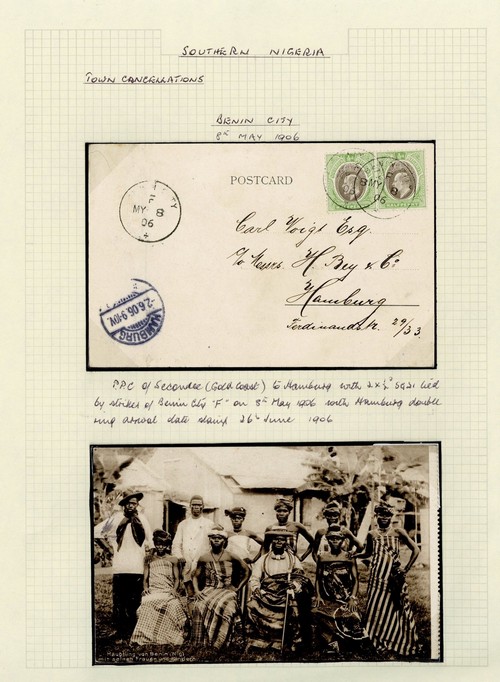 SOUTHERN NIGERIA
TOWN CANCELLATIONS
BENIN CITY
8th MAY 1906
POSTCARD
CITY
F
MY 8
06
Carl Voigt Esq.
Messrs. H. Bey & Co
Hamburg
Ferdinandstr. 29/33.
HAMBURG
2.6.06.9-10V.
P.P.C of Secondee (Gold Coast) to Hamburg with 2 x ½d SG21 tied
by strikes of Benin City "F" on 8th May 1906 with Hamburg double
ring arrival date stamp 26th June 1906
Häuptling von Benin
mit seinen Frauen und Kindern